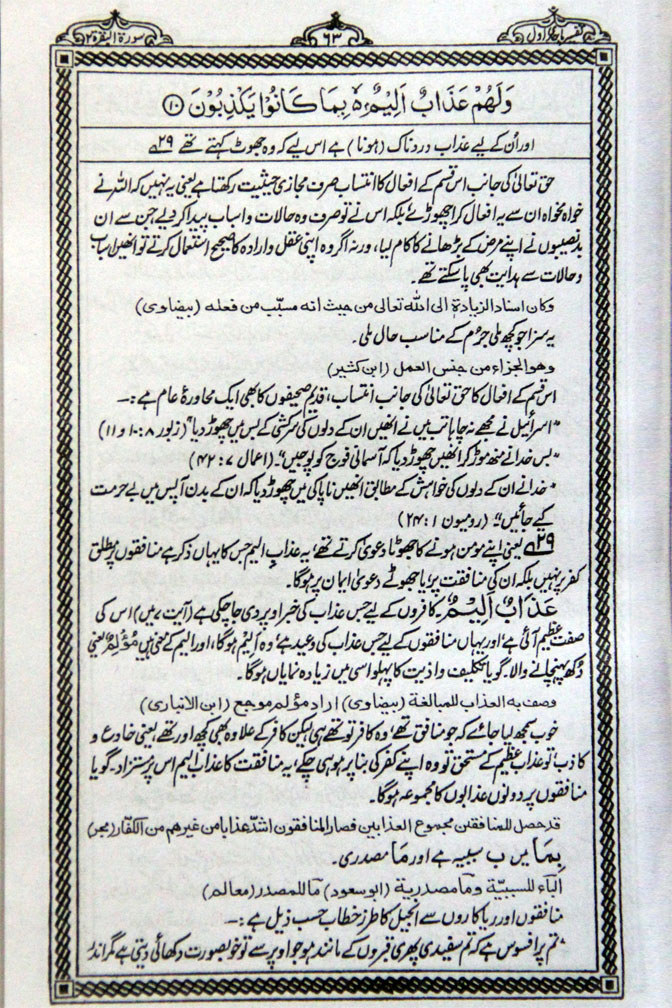 تفسیر ماجدی جزو اول
۶۳
سورۃ البقرۃ ۲
وَلَهُمْ عَذَابٌ اَلِيْمٌ ۢ ۵ بِمَا كَانُوْا يَكْذِبُوْنَ ⑩
اور اُن کے لیے عذاب دردناک (ہونا) ہے اس لیے کہ وہ جھوٹ کہتے تھے ۲۹
حق تعالیٰ کی جانب اس قسم کے افعال کا انتساب صرف مجازی حیثیت رکھتا ہے یعنی یہ نہیں کہ اللہ نے
خواہ مخواہ ان سے یہ افعال کرا چھوڑے، بلکہ اس نے تو صرف وہ حالات و اسباب پیدا کر دیے جن سے ان
بدنصیبوں نے اپنے مرض کے بڑھانے کا کام لیا، ورنہ اگر وہ اپنی عقل و ارادہ کا صحیح استعمال کرتے تو انھیں اسباب
و حالات سے ہدایت بھی پا سکتے تھے۔
وکان اسناد الزیادۃ الی اللہ تعالی من حیث انہ مسبّب من فعلہ (بیضاوی)
یہ سزا جو کچھ ملی جرم کے مناسب حال ملی۔
وھو الجزاء من جنس العمل (ابن کثیر)
اس قسم کے افعال کا حق تعالیٰ کی جانب انتساب، قدیم صحیفوں کا بھی ایک محاورۂ عام ہے :—
"اسرائیل نے مجھے نہ چاہا تب میں نے انھیں ان کے دلوں کی سرکشی کے بس میں چھوڑ دیا" (زبور ۸:۱۰ و ۱۱)
"بس خدا نے منھ موڑ کر انھیں چھوڑ دیا کہ آسمانی فوج کو پوجیں"۔ (اعمال ۷: ۴۲)
"خدا نے ان کے دلوں کی خواہش کے مطابق انھیں ناپاکی میں چھوڑ دیا کہ ان کے بدن آپس میں بے حرمت
کیے جائیں"۔ (رومیون ۱: ۲۴)
۲۹ یعنی اپنے مومن ہونے کا جھوٹا دعویٰ کرتے تھے، یہ عذاب الیم جس کا یہاں ذکر ہے منافقوں پر مطلق
کفر پر نہیں بلکہ ان کی منافقت پر یا جھوٹے دعویٔ ایمان پر ہوگا۔
عَذَابٌ اَلِیْمٌ۔ کافروں کے لیے جس عذاب کی خبر اوپر دی جا چکی ہے (آیت ۷ میں) اس کی
صفت عظیم آئی ہے اور یہاں منافقوں کے لیے جس عذاب کی وعید ہے، وہ الیم ہوگا، اور الیم کے معنی ہیں مؤلم یعنی
دُکھ پہنچانے والا۔ گویا تکلیف و اذیت کا پہلو اسی میں زیادہ نمایاں ہوگا۔
وصف بہ العذاب للمبالغۃ (بیضاوی) اراد مؤلم موجع (ابن الانباری)
خوب سمجھ لیا جائے کہ جو منافق تھے، وہ کافر تو تھے ہی لیکن کافر کے علاوہ بھی کچھ اور تھے، یعنی خادع و
کاذب تو عذاب عظیم کے مستحق تو وہ اپنے کفر کی بنا پر ہو ہی چکے، یہ منافقت کا عذاب الیم اس پر مستزاد۔ گویا
منافقوں پر دونوں عذابوں کا مجموعہ ہوگا۔
قد حصل للمنافقین مجموع العذابین فصار المنافقون اشدّ عذابا من غیرھم من الکفّار (بحر)
بِمَا میں ب سببیہ ہے اور مَا مصدری۔
الباء للسببیّۃ وما مصدریۃ (ابو سعود) ما للمصدر (معالم)
منافقوں اور ریاکاروں سے انجیل کا طرز خطاب حسب ذیل ہے :—
"تم پر افسوس ہے کہ تم سفیدی پھری قبروں کے مانند ہو جو اوپر سے تو خوبصورت دکھائی دیتی ہے مگر اندر